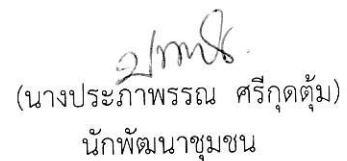 (นางประภาพรรณ ศรีกุดตุ้ม)
นักพัฒนาชุมชน